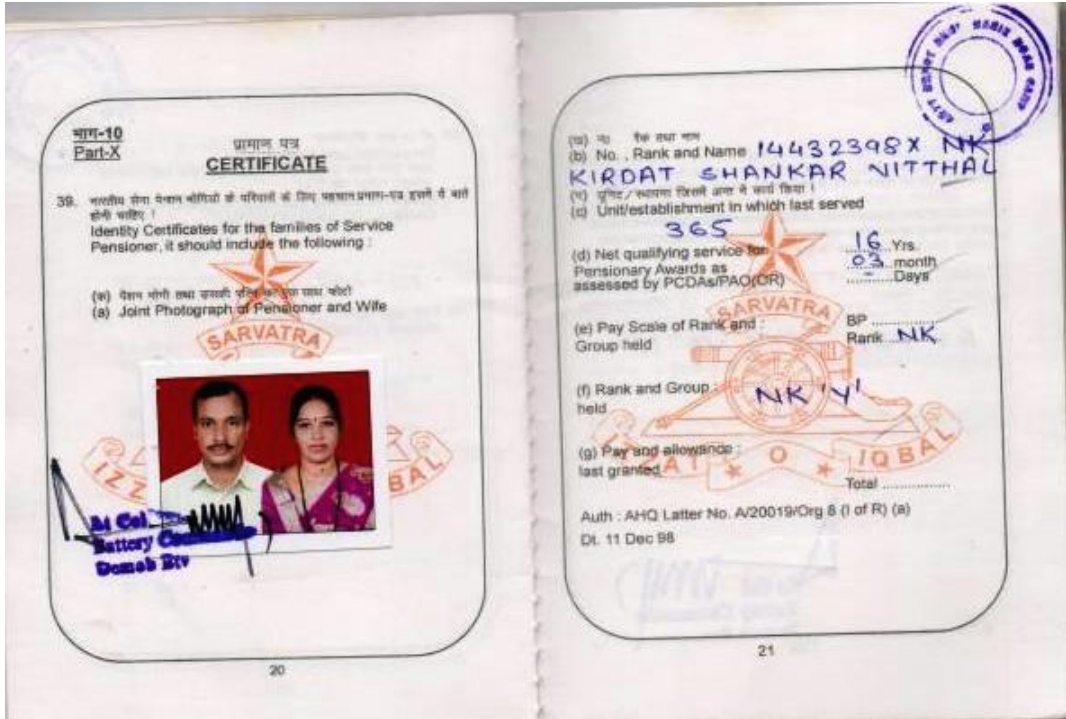 भाग-10
Part-X
प्रामाण पत्र
CERTIFICATE
39. भारतीय सेना पेन्शन भोगियों के परिवारों के लिए पहचान प्रमाण-पत्र इसमें ये बातें
होनी चाहिए ।
Identity Certificates for the families of Service
Pensioner, it should include the following :
(क) पेंशन भोगी तथा उसकी पत्नि का एक साथ फोटो
(a) Joint Photograph of Pensioner and Wife
SARVATRA
IZZ
BAL
Lt Col
Battery Commander
Demob Bty
20
(ख) नं. रैंक तथा नाम
(b) No., Rank and Name 14432398X NK
KIRDAT SHANKAR VITTHAL
(ग) यूनिट/स्थापना जिसमें अन्त में कार्य किया ।
(c) Unit/establishment in which last served
365
(d) Net qualifying service for 16 Yrs.
Pensionary Awards as 03 month
assessed by PCDAs/PAO(OR) - Days
SARVATRA
(e) Pay Scale of Rank and : BP ..............
Group held Rank NK
(f) Rank and Group : NK 'Y'
held
(g) Pay and allowance :
last granted
AT O IQBAL
Total ..............
Auth : AHQ Latter No. A/20019/Org 8 (I of R) (a)
Dt. 11 Dec 98
21